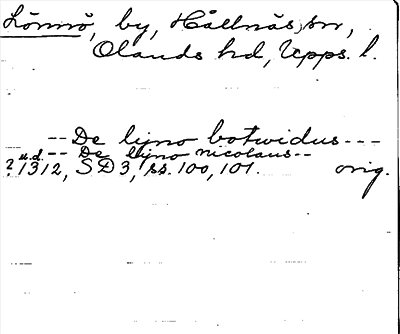 Lönnö, by, Hållnäs sn,
Olands hd, Upps. l.
-- De lijno botwidus ---
u.d. -- De lijno nicolaus --
? 1312, SD 3, ss. 100, 101. orig.